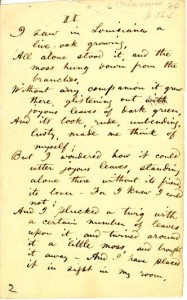 II.
I saw in Louisiana a
live-oak growing,
All alone stood it, and the
moss hung down from the
branches,
Without any companion it grew
there, glistening out with
joyous leaves of dark green,
And its look, rude, unbending,
lusty, made me think of
myself;
But I wondered how it could
utter joyous leaves, standing
alone there without its friend,
its lover — For I knew I could
not;
And I plucked a twig with
a certain number of leaves
upon it, and twined around
it a little moss, and brought
it away — And I have placed
it in sight in my room,
2